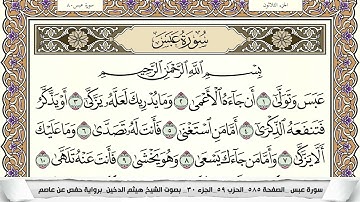 الجزء الثلاثون
سورة عبس ٨٠
سُورَةُ عَبَسَ
بِسْمِ اللَّهِ الرَّحْمَٰنِ الرَّحِيمِ
عَبَسَ وَتَوَلَّىٰ ١ أَن جَاءَهُ الْأَعْمَىٰ ٢ وَمَا يُدْرِيكَ لَعَلَّهُ يَزَّكَّىٰ ٣ أَوْ يَذَّكَّرُ
فَتَنفَعَهُ الذِّكْرَىٰ ٤ أَمَّا مَنِ اسْتَغْنَىٰ ٥ فَأَنتَ لَهُ تَصَدَّىٰ ٦ وَمَا عَلَيْكَ
أَلَّا يَزَّكَّىٰ ٧ وَأَمَّا مَن جَاءَكَ يَسْعَىٰ ٨ وَهُوَ يَخْشَىٰ ٩ فَأَنتَ عَنْهُ تَلَهَّىٰ ١٠
سورة عبس_الصفحة ٥٨٥_الحزب ٥٩_الجزء ٣٠_بصوت الشيخ هيثم الدخين_برواية حفص عن عاصم